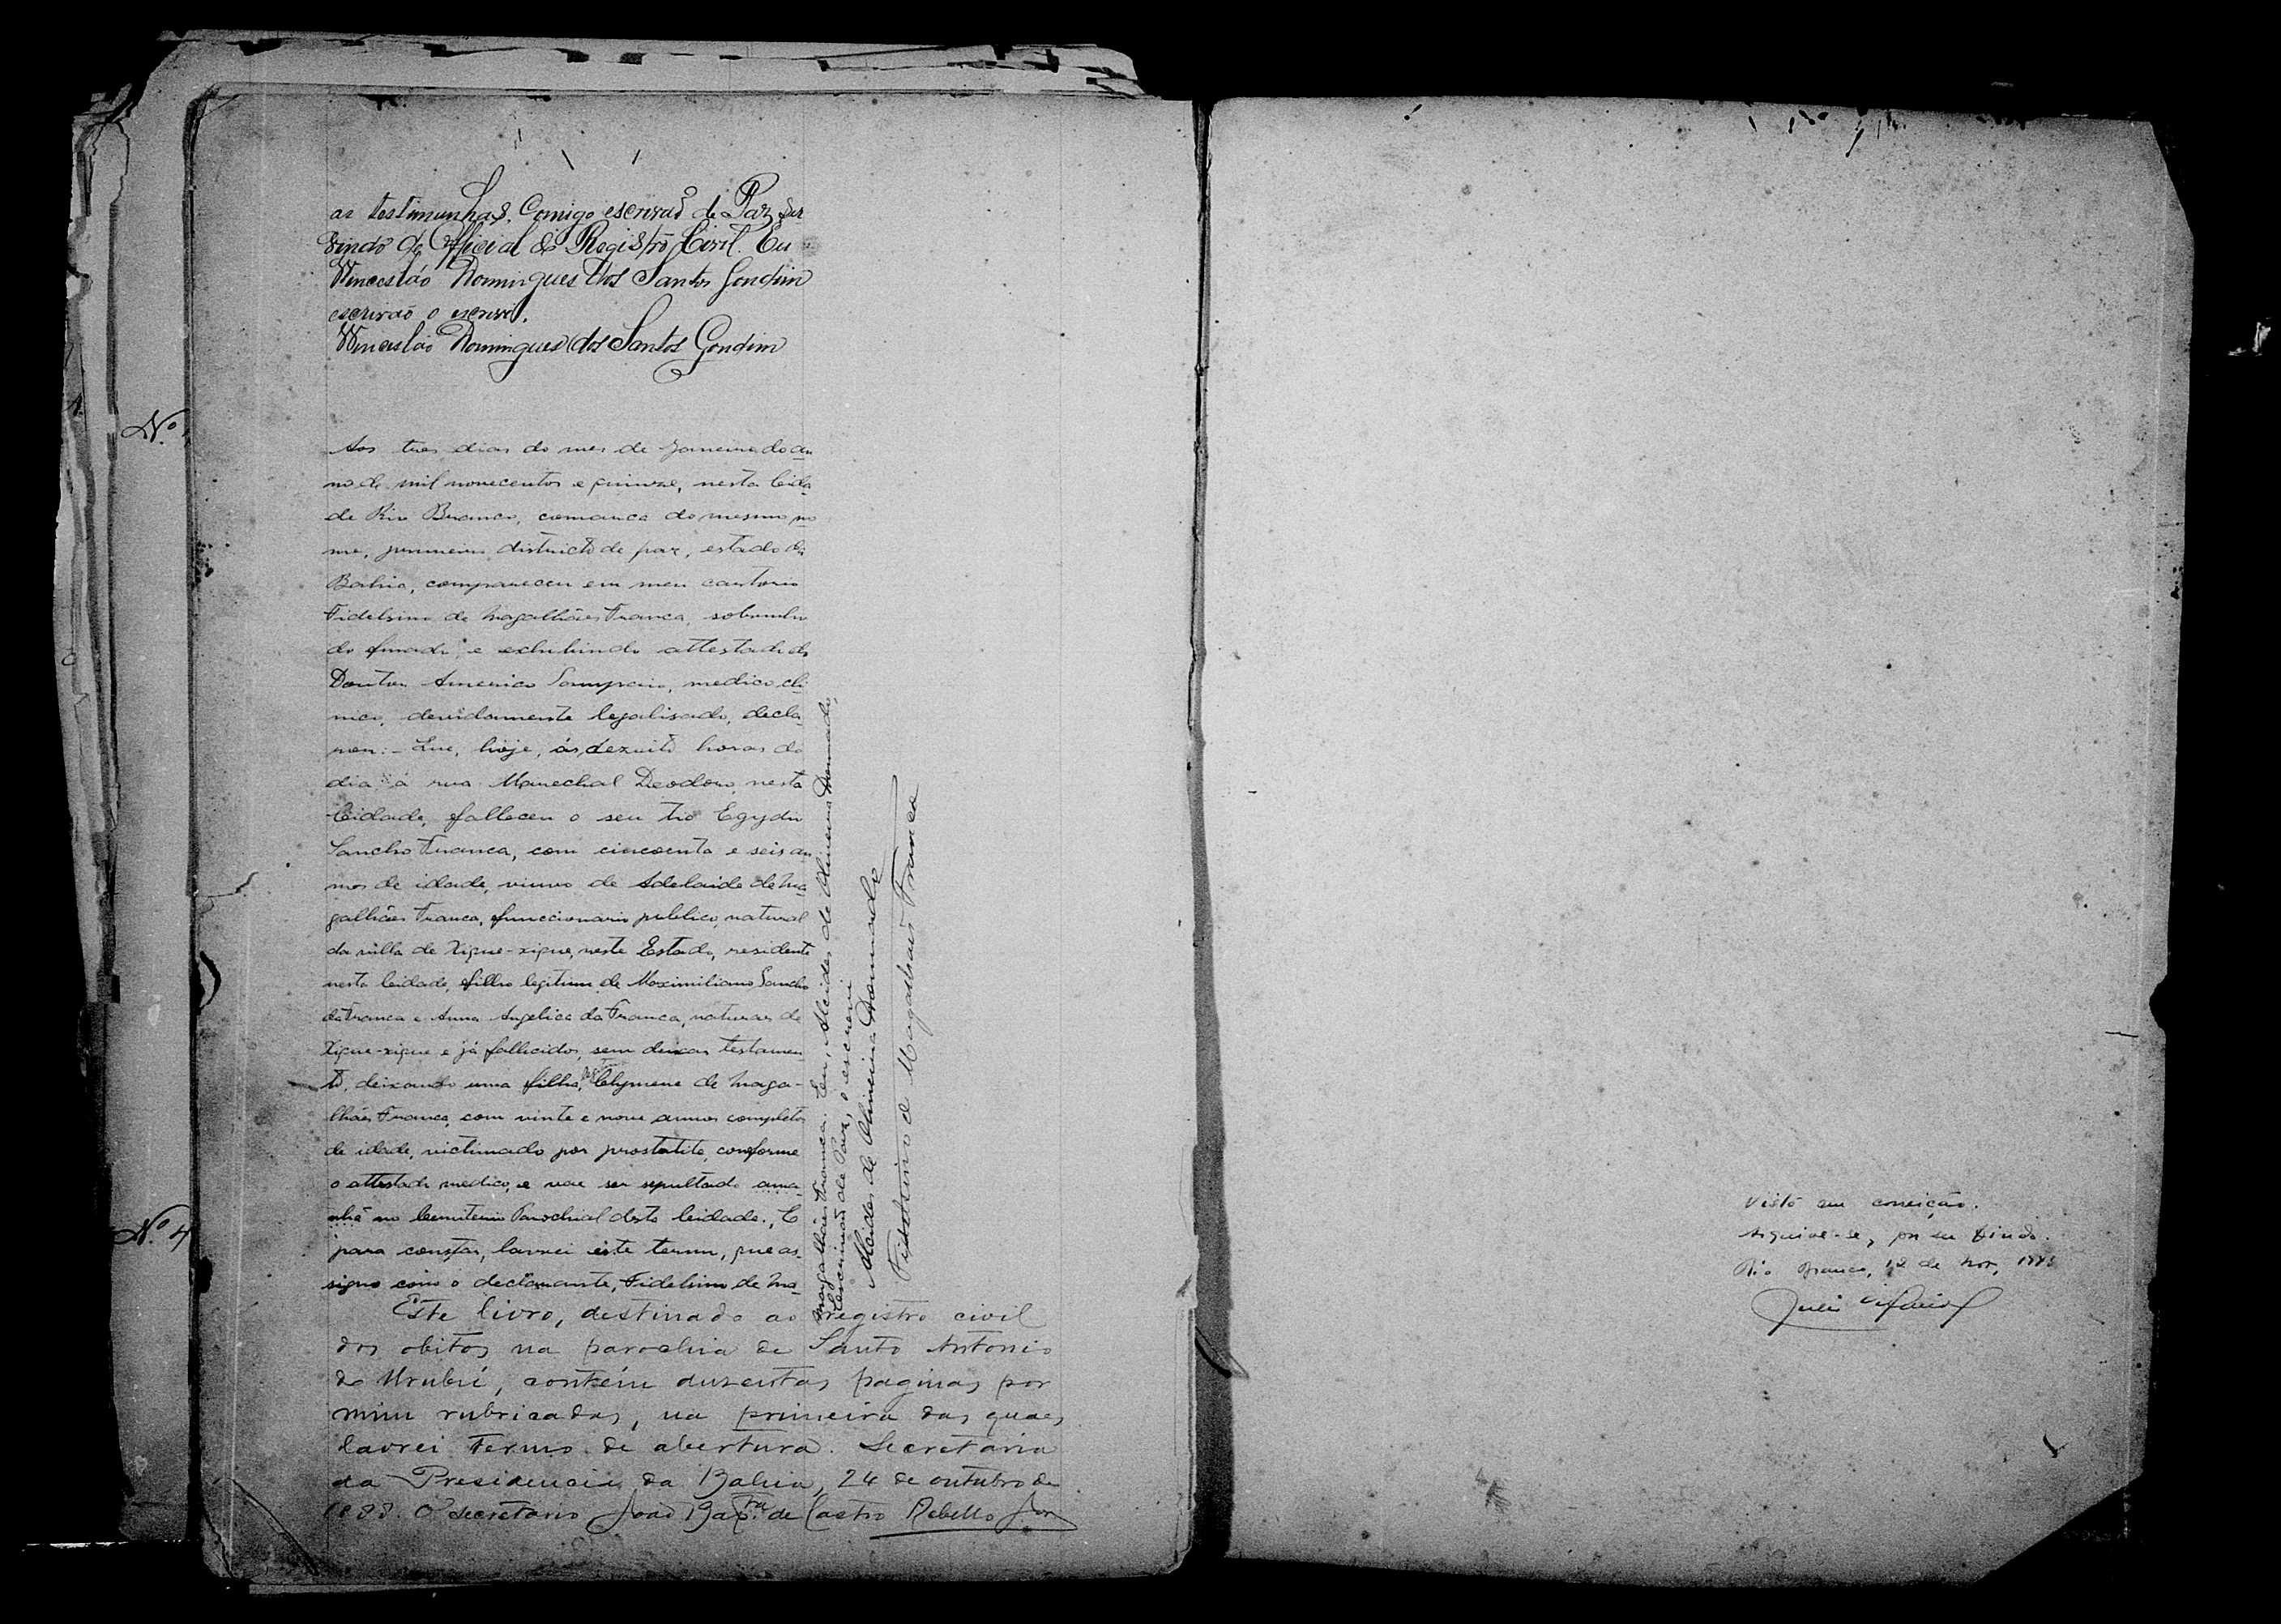 as testimunhas. Comigo escrivaõ de Paz ser
vindo de Official do Registro Civil. Eu
Wincesláo Domingues dos Santos Gondim
escrivaõ o escrevi.
Winceslao Domingues dos Santos Gondim
Aos tres dias do mes de Janeiro do an
no de mil novecentos e quinze, nesta Cida
de Rio Branco, comarca do mesmo no
me, primeiro districto de paz, estado da
Bahia, compareceu em meu cartorio
Fidelsino de Magalhães Franca, sobrinho
do finado, e exhibindo attestado do
Doutor Americo Sampaio, medico cli
nico, devidamente legalisado, decla
rou:- Que, hoje, ás dezoito horas do
dia á rua Marechal Deodoro, nesta
Cidade, falleceu o seu tio Egydio
Sancho Franca, com cincoenta e seis an
nos de idade, viuvo de Adelaide de Ma
galhães Franca, funccionario publico, natural
da villa de Xique-xique, neste Estado, residente
nesta Cidade, filho legitimo de Maximiliano Sancho
da Franca e Anna Angelica da Franca, naturaes de
Xique-xique e já fallecidos, sem deixar testamen
to, deixando uma filha, Clymene de Maga-
lhães Franca, com vinte e nove annos completos
de idade, victimado por prostatite, conforme
o attestado medico, e vae ser sepultado ama-
nhã no Cemiterio Parochial desta Cidade. E
para constar, lavrei este termo, que as-
signo com o declarante, Fidelsino de Ma-
magalhães Franca. Eu, Alcides de Oliveira Dourado,
Escrivão de Paz, o escrevi
Alcides de Oliveira Dourado
Fidelsino de Magalhais Franca
Este livro, destinado ao registro civil
dos obitos na parochia de Santo Antonio
do Urubú, contém duzentas paginas por
mim rubricadas, na primeira das quaes
lavrei termo de abertura. Secretaria
da Presidencia da Bahia, 24 de outubro de
1888. O Secretario João Bap.ta de Castro Rebello Jor
Nº
Nº 4
Visto em correição.
Arquive-se, por ser findo.
Rio Branco, 12 de Nov,